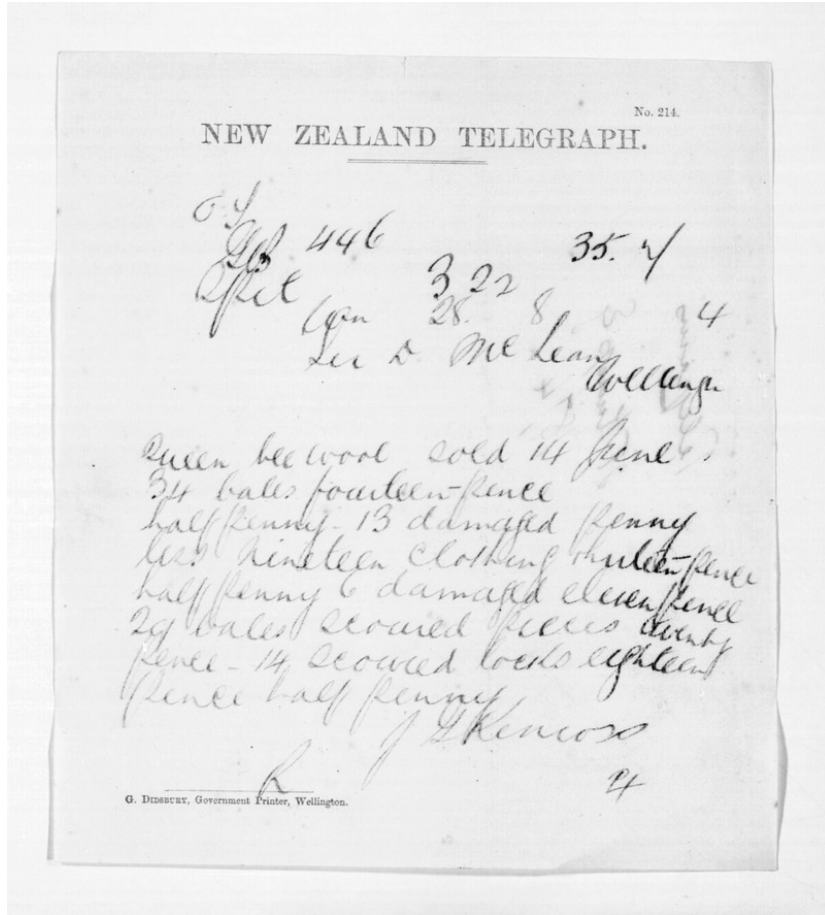 No. 214.
NEW ZEALAND TELEGRAPH.
446 35.
322
28. 8 4
Sir D. McLean
Wellingn
Queen bee wool sold 14 June
34 bales fourteen-pence
halfpenny - 13 damaged penny
less nineteen clothing thirteen-pence
halfpenny 6 damaged elevenpence
29 bales scoured pieces twenty
pence - 14 scoured locks eighteen
pence half penny
J G Kinross
G. DIDSBURY, Government Printer, Wellington.